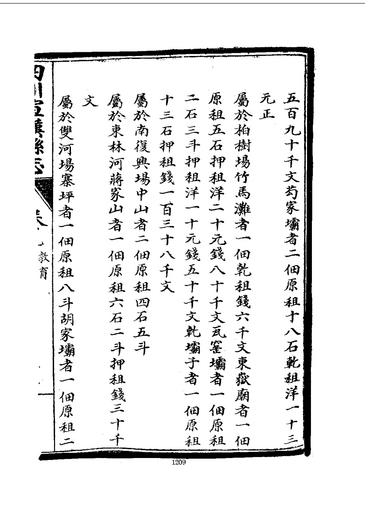 五百九十千文芶家壩者二個原租十八石乾租洋一十三
元正
屬於柏樹場竹馬灘者一個乾租錢六千文東嶽廟者一個
原租五石押租洋二十元錢八十千文瓦窰壩者一個原租
二石三斗押租洋一十元錢五十千文乾壩子者一個原租
十三石押租錢一百三十八千文
屬於南復興場中山者二個原租四石五斗
屬於東林河蔣家山者一個原租六石二斗押租錢三十千
文
屬於雙河場寨坪者一個原租八斗胡家壩者一個原租二
四川宣漢縣志
教育
1209